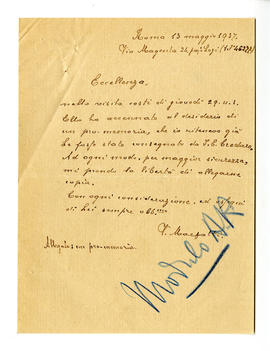 Roma 13 maggio 1937.
Via Magenta 24
Eccellenza,
nella visita costì di giovedì 29.u.s.
Ella ha accennato al desiderio di
un pro-memoria, che io ritenevo già
Le fosse stato consegnato da S.E.
Ad ogni modo, per maggior sicurezza,
mi prendo la libertà di allegarne
copia.
Con ogni considerazione, ed
di Lei sempre obb.mo
Allegato: un pro-memoria.
Modulo